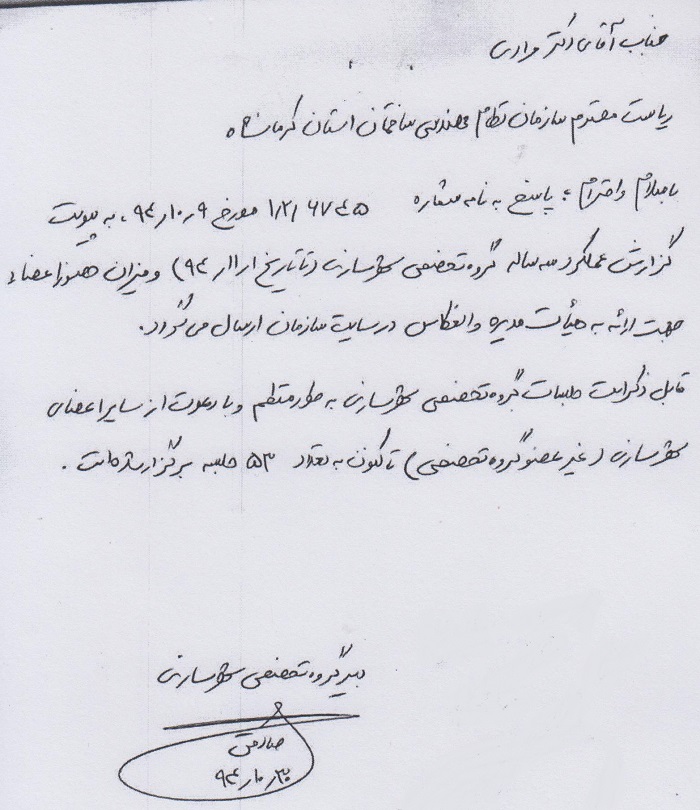 جناب آقای دکتر مرادی
ریاست محترم سازمان نظام مهندسی ساختمان استان کرمانشاه
با سلام و احترام؛ پاسخ به نامه شماره ۱/۲/۶۷۴۵ مورخ ۹۴،۱۰،۹ به پیوست
گزارش عملکرد سه ساله گروه تخصصی شهرسازی (تا تاریخ ۹۴،۱۱،۱) و میزان حضور اعضاء
جهت ارائه به هیأت مدیره و انعکاس در سایت سازمان ارسال می گردد.
قابل ذکر است جلسات گروه تخصصی شهرسازی به طور منظم و با دعوت از سایر اعضای
شهرسازی (غیر عضو گروه تخصصی) تاکنون به تعداد ۵۳ جلسه برگزار شده است.
دبیر گروه تخصصی شهرسازی
۹۴،۱۰،۳۰